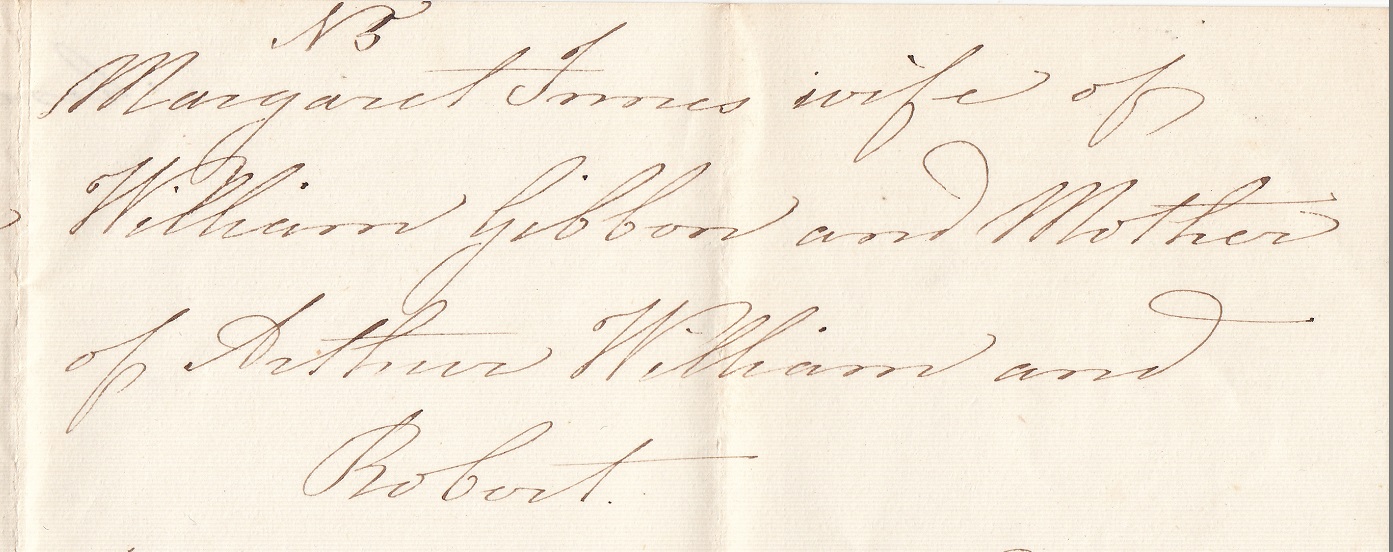 NB
Margaret Innes wife of
William Gibbon and Mother
of Arthur William and
Robert.